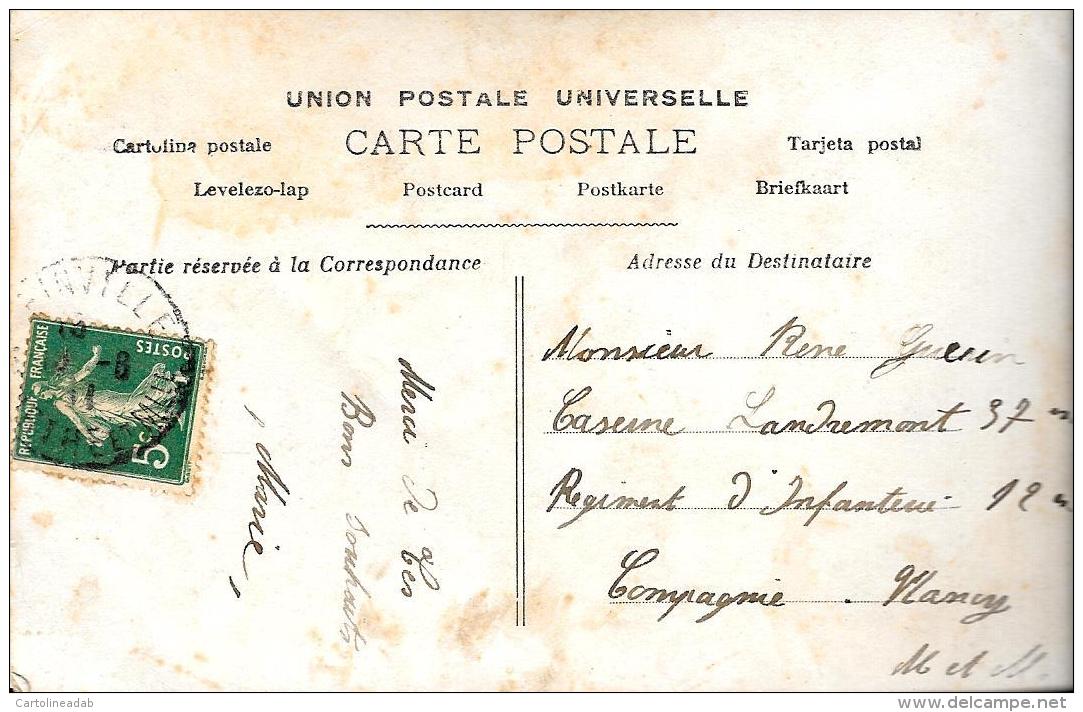 UNION POSTALE UNIVERSELLE
CARTE POSTALE
Cartolina postale
Tarjeta postal
Levelezo-lap
Postcard
Postkarte
Briefkaart
Partie réservée à la Correspondance
Adresse du Destinataire
REPUBLIQUE FRANÇAISE
POSTES
5c
Merci de tes
Bons souhaits
Marie
Monsieur Rene Guerin
Caserne Landremont 37
Regiment d'Infanterie 12
Compagnie . Nancy
M et M.
Cartolineadab
www.delcampe.net